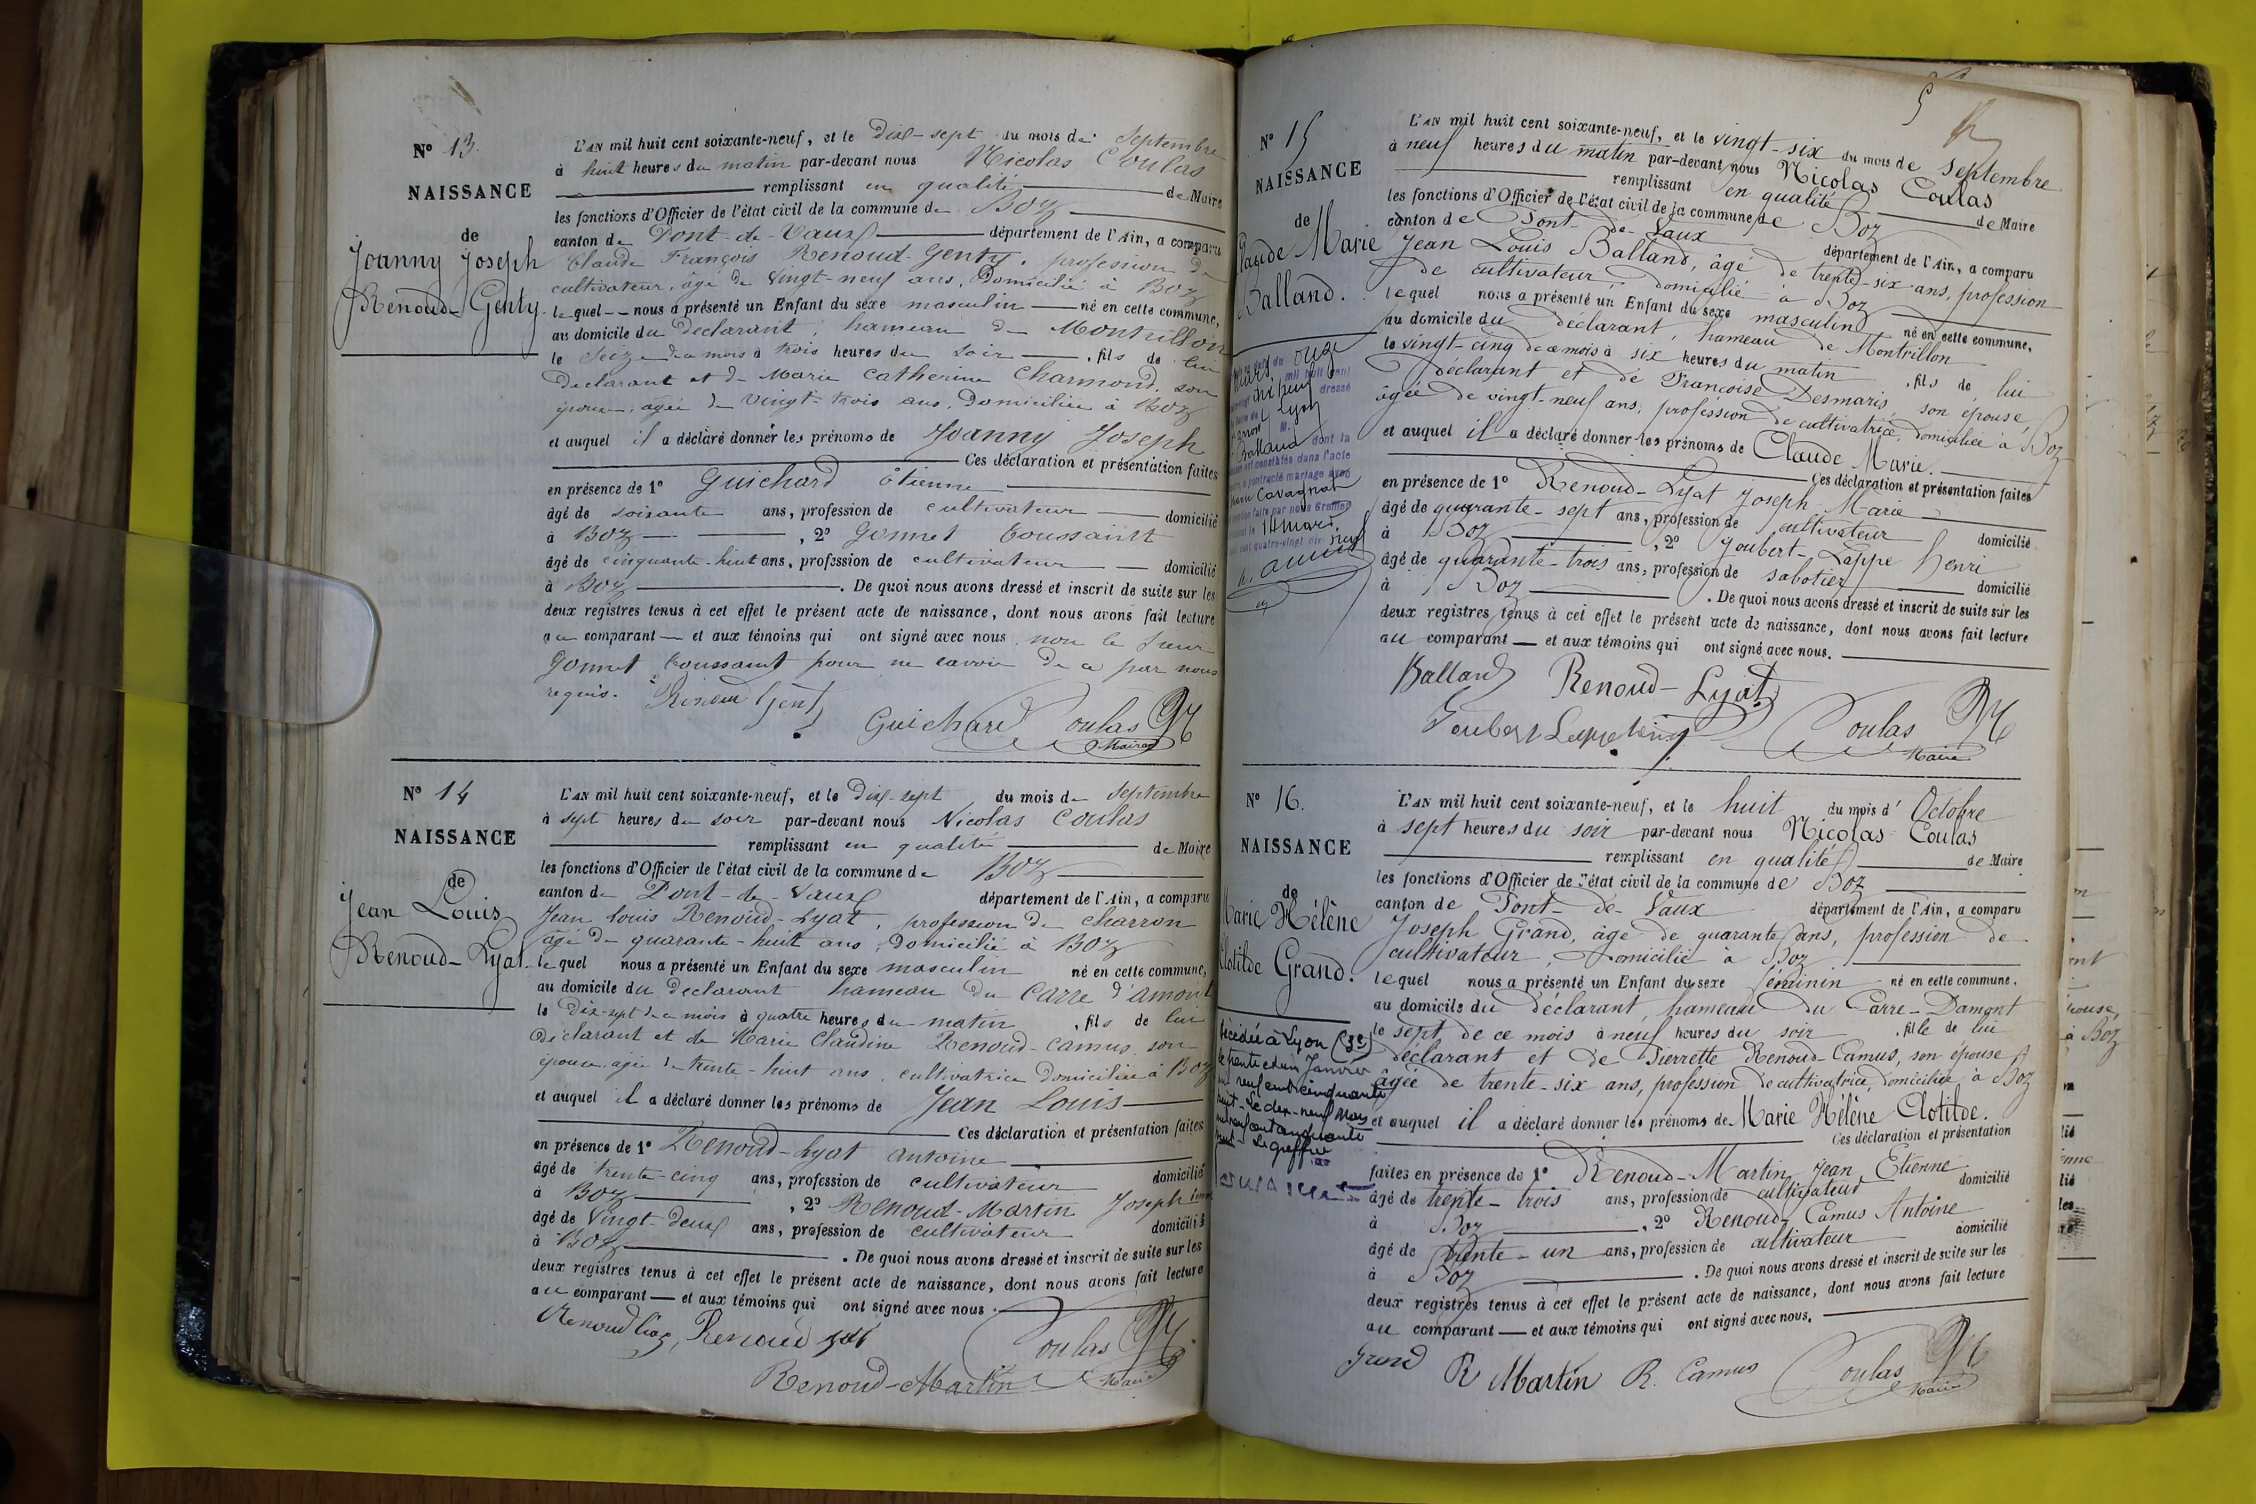 N° 13.
NAISSANCE
de
Joanny Joseph
Renoud-Genty.
L'AN mil huit cent soixante-neuf, et le dix-sept du mois de Septembre
à huit heures du matin par-devant nous Nicolas Coulas
remplissant en qualité de Maire
les fonctions d'Officier de l'état civil de la commune de Boz
canton de Pont-de-Vaux département de l'Ain, a comparu
Claude François Renoud-Genty, profession de
cultivateur, âgé de vingt-neuf ans, Domicilié à Boz
lequel nous a présenté un Enfant du sexe masculin né en cette commune,
au domicile du Declarant, hameau de Montrillon
le seize de ce mois à trois heures du soir, fils de lui
declarant et de Marie Catherine Charmond, son
épouse, agée de vingt-trois ans, Domiciliée à Boz
et auquel il a déclaré donner les prénoms de Joanny Joseph
Ces déclaration et présentation faites
en présence de 1° Guichard étienne
âgé de soixante ans, profession de cultivateur domicilié
à Boz, 2° Gonnet Toussaint
âgé de cinquante-huit ans, profession de cultivateur domicilié
à Boz. De quoi nous avons dressé et inscrit de suite sur les
deux registres tenus à cet effet le présent acte de naissance, dont nous avons fait lecture
au comparant et aux témoins qui ont signé avec nous non le sieur
Gonnet Toussaint pour ne savoir de ce par nous
requis. Renoud Genty
Guichard Coulas
Maire
N° 14
NAISSANCE
de
Jean Louis
Renoud-Lyat.
L'AN mil huit cent soixante-neuf, et le dix-sept du mois de Septembre
à sept heures du soir par-devant nous Nicolas Coulas
remplissant en qualité de Maire
les fonctions d'Officier de l'état civil de la commune de Boz
canton de Pont-de-Vaux département de l'Ain, a comparu
Jean Louis Renoud-Lyat, profession de charron
âgé de quarante-huit ans, Domicilié à Boz
lequel nous a présenté un Enfant du sexe masculin né en cette commune,
au domicile du declarant hameau du Carre d'amont
le dix-sept de ce mois à quatre heures du matin, fils de lui
déclarant et de Marie Claudine Renoud-Camus, son
épouse, agée de trente-huit ans, cultivatrice Domiciliée à Boz
et auquel il a déclaré donner les prénoms de Jean Louis
Ces déclaration et présentation faites
en présence de 1° Renoud-Lyat antoine
âgé de trente-cinq ans, profession de cultivateur domicilié
à Boz, 2° Renoud-Martin Joseph
âgé de vingt-deux ans, profession de cultivateur domicilié
à Boz. De quoi nous avons dressé et inscrit de suite sur les
deux registres tenus à cet effet le présent acte de naissance, dont nous avons fait lecture
au comparant et aux témoins qui ont signé avec nous.
Renoud Renoud
Coulas
Renoud-Martin Maire
N° 15
NAISSANCE
de
Claude Marie
Balland.
L'AN mil huit cent soixante-neuf, et le vingt-six du mois de Septembre
à neuf heures du matin par-devant nous Nicolas Coulas
remplissant en qualité de Maire
les fonctions d'Officier de l'état civil de la commune de Boz
canton de Pont-de-Vaux département de l'Ain, a comparu
Jean Louis Balland, âgé de trente-six ans, profession
de cultivateur, domicilié à Boz
lequel nous a présenté un Enfant du sexe masculin né en cette commune,
au domicile du déclarant, hameau de Montrillon
le vingt-cinq de ce mois à six heures du matin, fils de lui
déclarant et de Françoise Desmaris, son épouse,
âgée de vingt-neuf ans, profession de cultivatrice, domiciliée à Boz
et auquel il a déclaré donner les prénoms de Claude Marie.
Ces déclaration et présentation faites
en présence de 1° Renoud-Lyat Joseph Marie
âgé de quarante-sept ans, profession de cultivateur domicilié
à Boz, 2° Joubert-Lappe Henri
âgé de quarante-trois ans, profession de sabotier domicilié
à Boz. De quoi nous avons dressé et inscrit de suite sur les
deux registres tenus à cet effet le présent acte de naissance, dont nous avons fait lecture
au comparant et aux témoins qui ont signé avec nous.
Balland Renoud-Lyat
Joubert Coulas
Maire
onze
mil huit cent
dressé
Lyon
Balland dont la
constatés dans l'acte
a contracté mariage avec
Cavagna
faite par nous Greffier
le 14 mars
cent quatre-vingt dix neuf
N° 16.
NAISSANCE
de
Marie Hélène
Clotilde Grand.
L'AN mil huit cent soixante-neuf, et le huit du mois d'Octobre
à sept heures du soir par-devant nous Nicolas Coulas
remplissant en qualité de Maire
les fonctions d'Officier de l'état civil de la commune de Boz
canton de Pont-de-Vaux département de l'Ain, a comparu
Joseph Grand, âgé de quarante ans, profession de
cultivateur, domicilié à Boz
lequel nous a présenté un Enfant du sexe féminin né en cette commune.
au domicile du déclarant, hameau du Carre-Damont
le sept de ce mois à neuf heures du soir, fille de lui
déclarant et de Pierrette Renoud-Camus, son épouse
âgée de trente-six ans, profession de cultivatrice, domiciliée à Boz
et auquel il a déclaré donner les prénoms de Marie Hélène Clotilde.
Ces déclaration et présentation
faites en présence de 1° Renoud-Martin Jean Etienne
âgé de trente-trois ans, profession de cultivateur domicilié
à Boz, 2° Renoud-Camus Antoine
âgé de trente-un ans, profession de cultivateur domicilié
à Boz. De quoi nous avons dressé et inscrit de suite sur les
deux registres tenus à cet effet le présent acte de naissance, dont nous avons fait lecture
au comparant et aux témoins qui ont signé avec nous.
Grand R Martin R. Camus Coulas
Maire
Décédée à Lyon (3e)
le trente et un Janvier
mil neuf cent cinquante
huit. Le dix-neuf Mars
mil neuf cent cinquante
huit. Le greffier